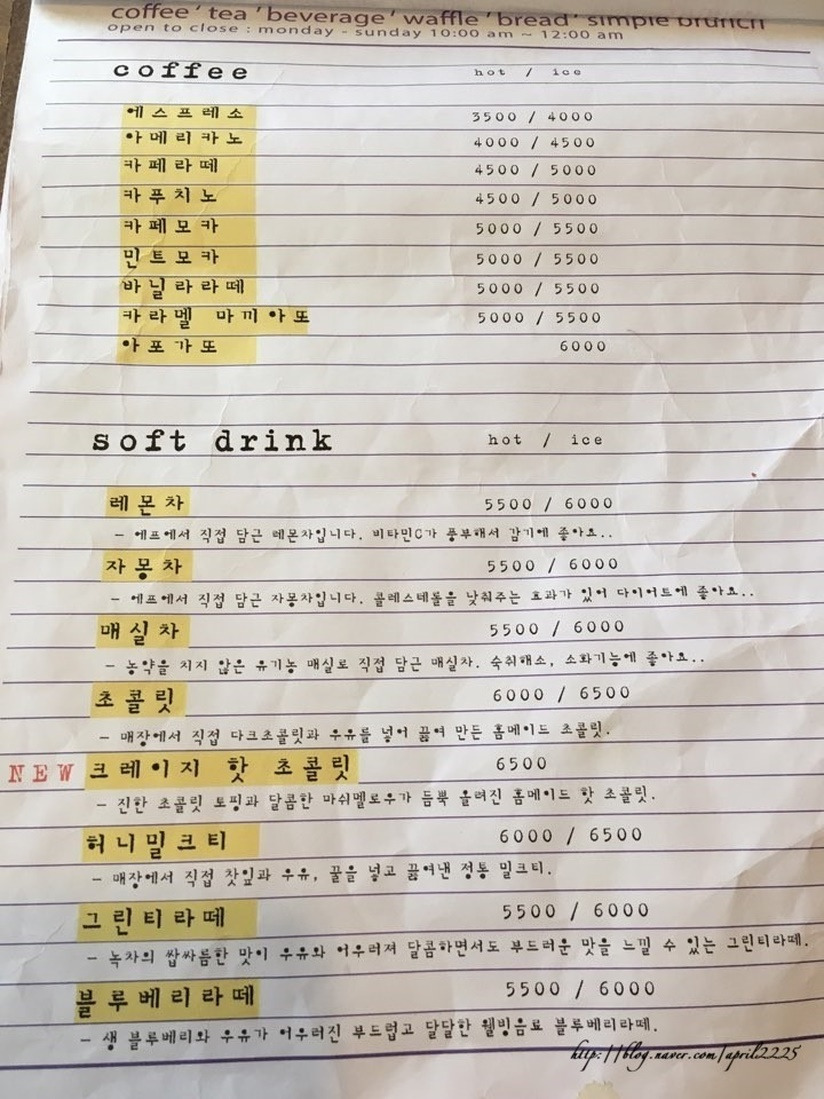 coffee ' tea ' beverage ' waffle ' bread ' simple brunch
open to close : monday - sunday 10:00 am ~ 12:00 am
coffee hot / ice
에스프레소 3500 / 4000
아메리카노 4000 / 4500
카페라떼 4500 / 5000
카푸치노 4500 / 5000
카페모카 5000 / 5500
민트모카 5000 / 5500
바닐라라떼 5000 / 5500
카라멜 마끼아또 5000 / 5500
아포가또 6000
soft drink hot / ice
레몬차 5500 / 6000
- 에프에서 직접 담근 레몬차입니다. 비타민C가 풍부해서 감기에 좋아요..
자몽차 5500 / 6000
- 에프에서 직접 담근 자몽차입니다. 콜레스테롤을 낮춰주는 효과가 있어 다이어트에 좋아요..
매실차 5500 / 6000
- 농약을 치지 않은 유기농 매실로 직접 담근 매실차. 숙취해소, 소화기능에 좋아요..
초콜릿 6000 / 6500
- 매장에서 직접 다크초콜릿과 우유를 넣어 끓여 만든 홈메이드 초콜릿.
NEW 크레이지 핫 초콜릿 6500
- 진한 초콜릿 토핑과 달콤한 마쉬멜로우가 듬뿍 올려진 홈메이드 핫 초콜릿.
허니밀크티 6000 / 6500
- 매장에서 직접 찻잎과 우유, 꿀을 넣고 끓여낸 정통 밀크티.
그린티라떼 5500 / 6000
- 녹차의 쌉싸름한 맛이 우유와 어우러져 달콤하면서도 부드러운 맛을 느낄 수 있는 그린티라떼.
블루베리라떼 5500 / 6000
- 생 블루베리와 우유가 어우러진 부드럽고 달달한 웰빙음료 블루베리라떼.
http://blog.naver.com/april2225